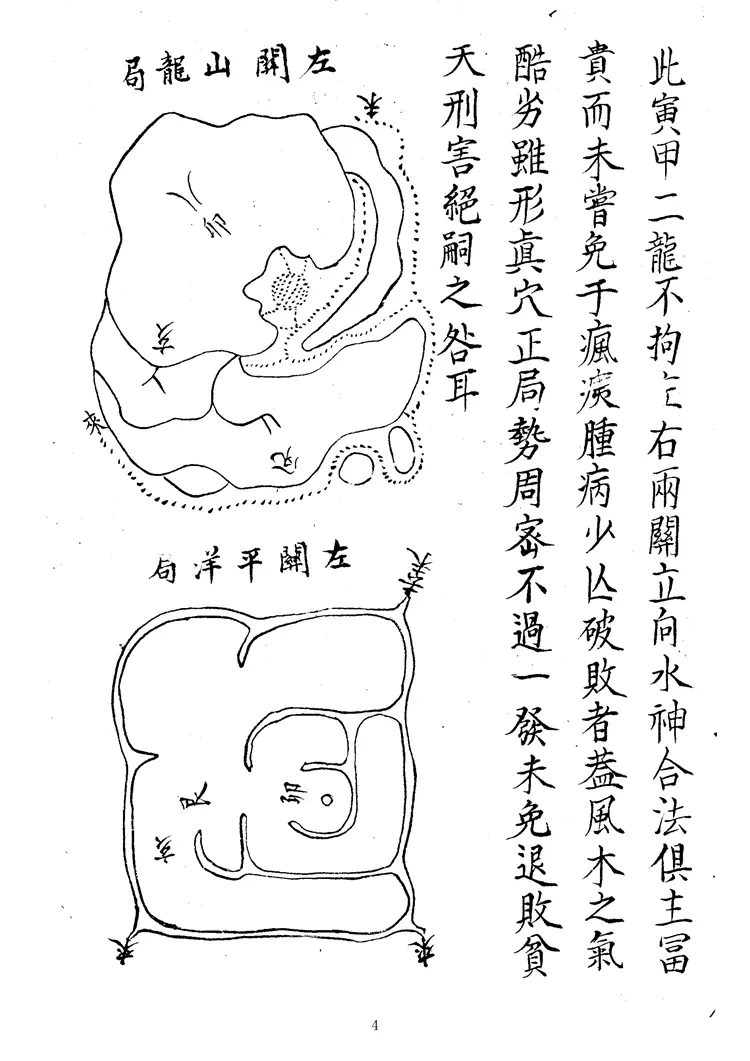 此寅甲二龍不拘左右兩關立向水神合法俱主冨
貴而未嘗免于瘋痰腫病少亾破敗者葢風木之氣
酷劣雖形眞穴正局勢周宻不過一發未免退敗貧
夭刑害絕嗣之咎耳
左關山龍局
未
卯
亥
來
左關平洋局
艮
卯
亥
來
來
4